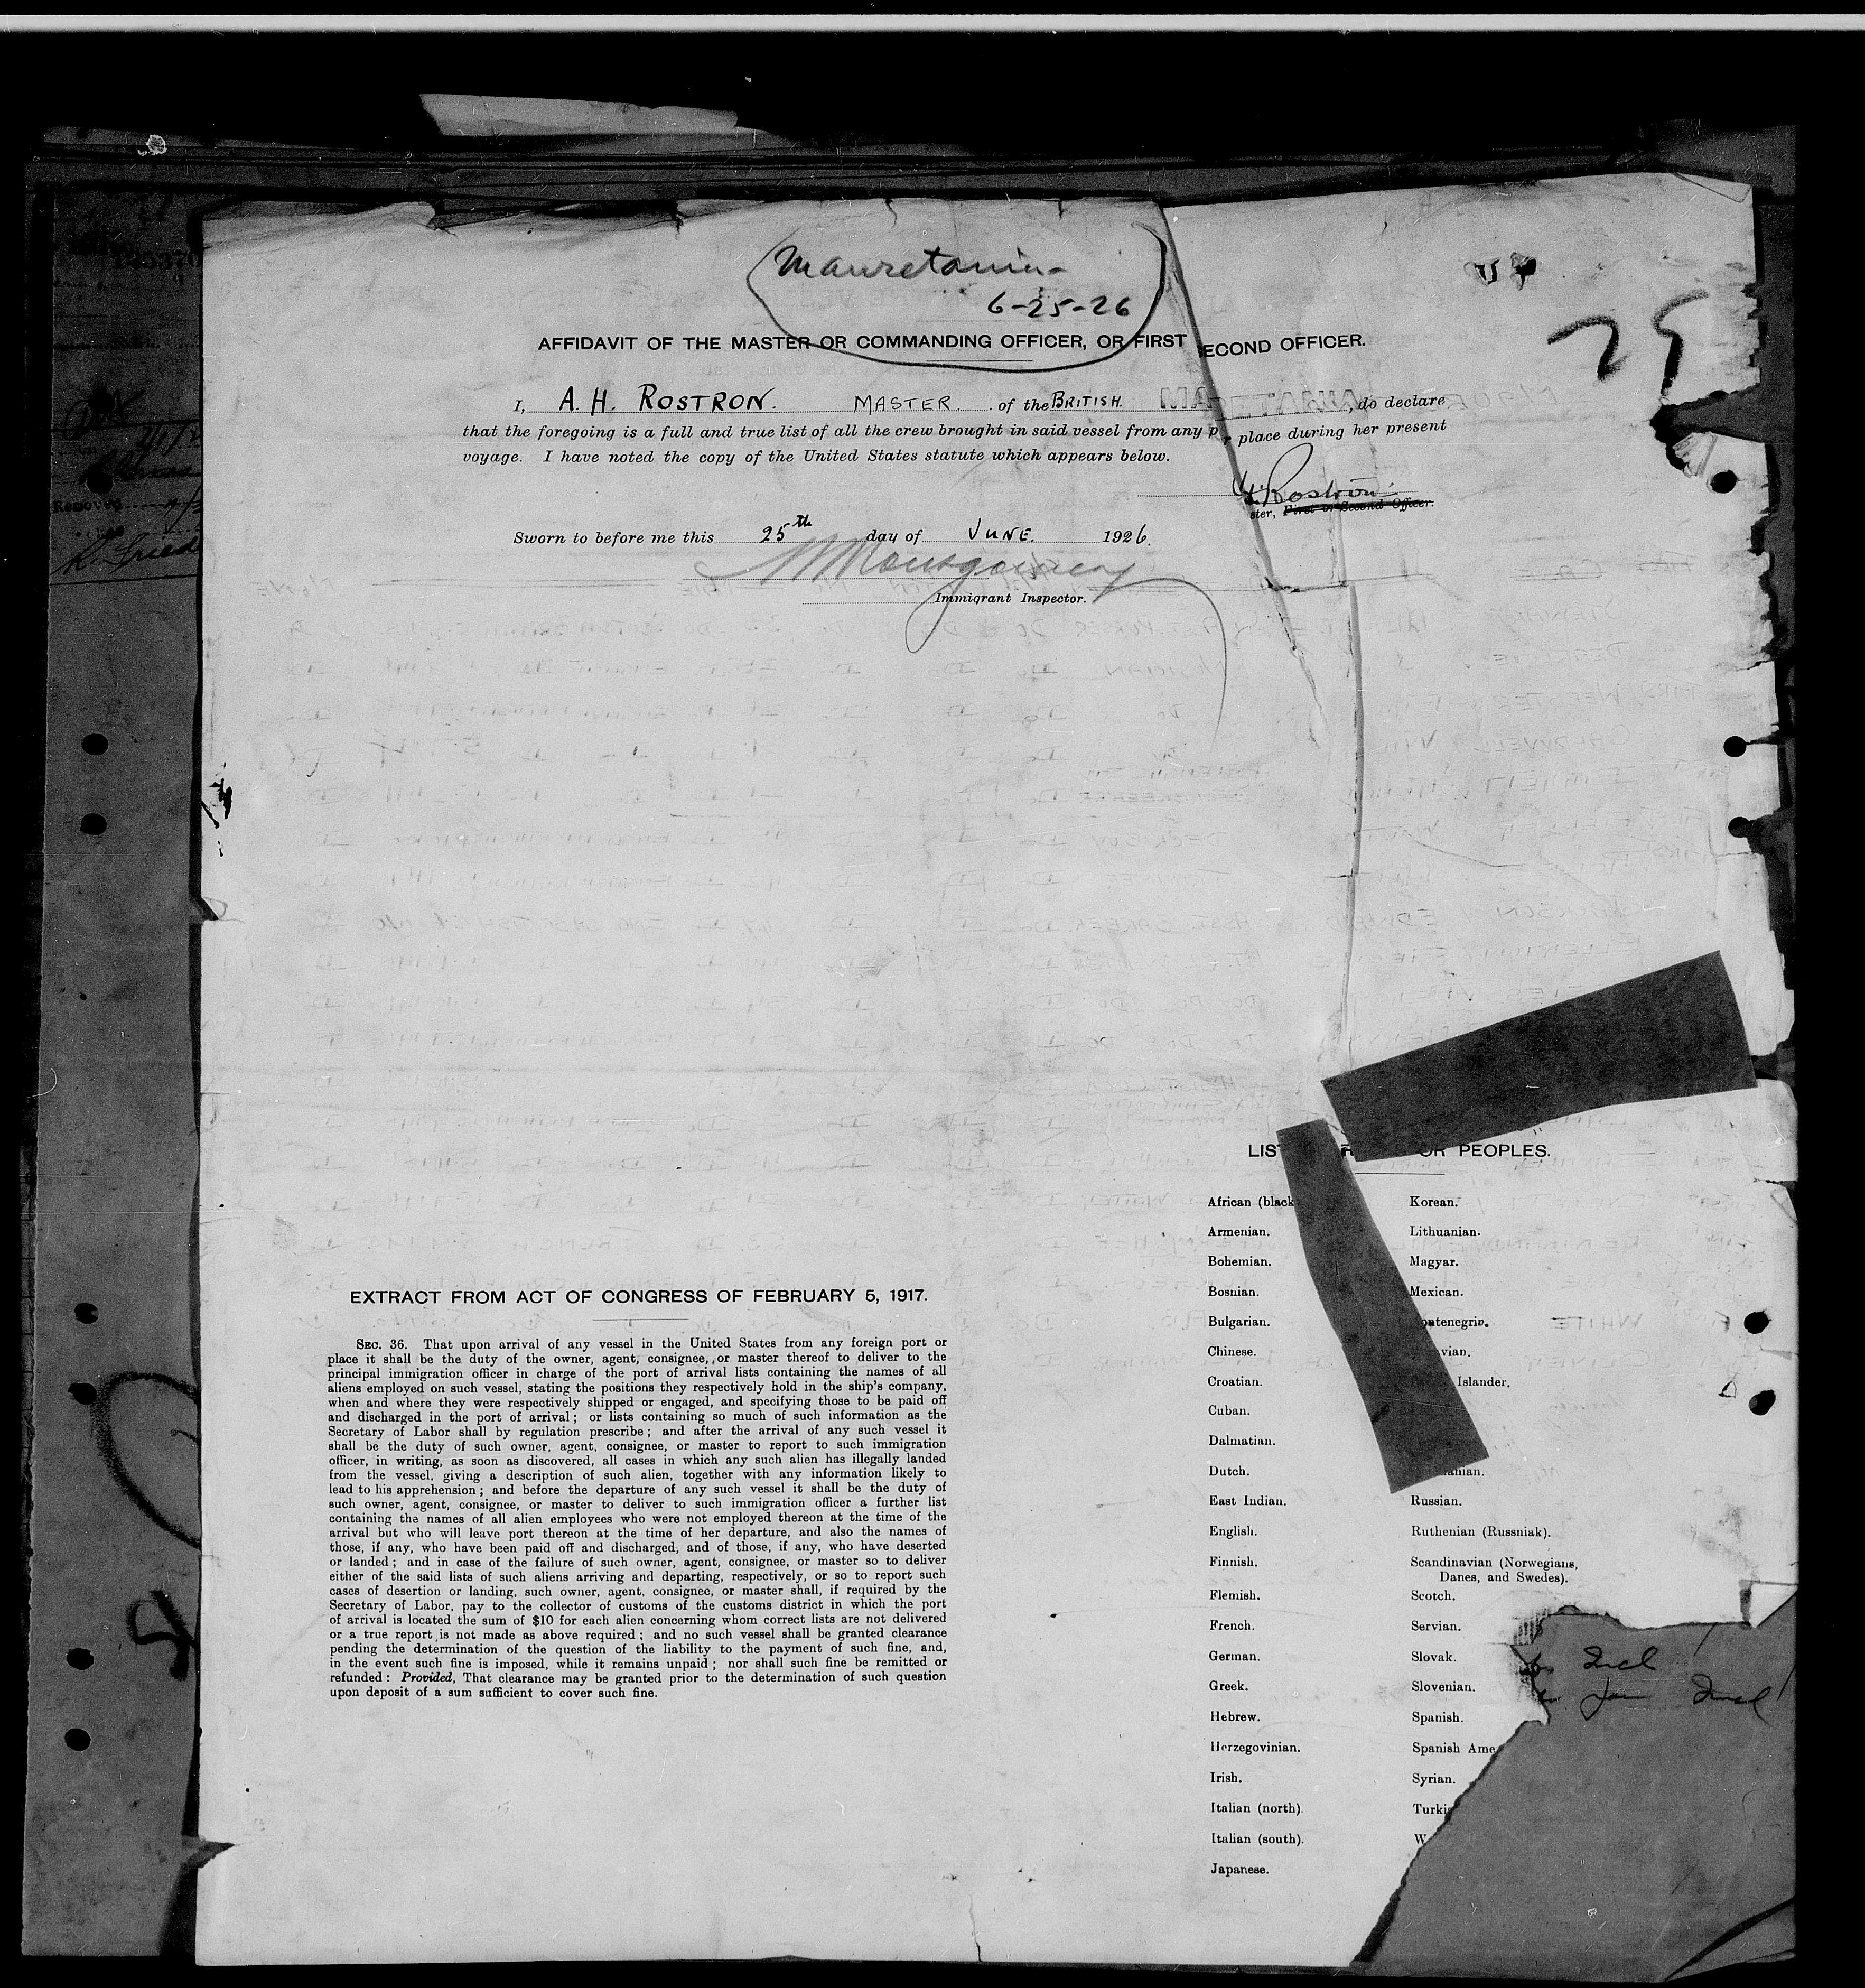 Mauretania-
6-25-26
25
AFFIDAVIT OF THE MASTER OR COMMANDING OFFICER, OR FIRST ECOND OFFICER.
I, A. H. ROSTRON. MASTER. of the BRITISH. MA ETANIA, do declare
that the foregoing is a full and true list of all the crew brought in said vessel from any p r place during her present
voyage. I have noted the copy of the United States statute which appears below.
Rostron
ster, First or Second Officer.
Sworn to before me this 25th day of JUNE. 1926.
Montgomery
Immigrant Inspector.
Removed
R. Friede
LIST R OR PEOPLES.
African (black
Armenian.
Bohemian.
Bosnian.
Bulgarian.
Chinese.
Croatian.
Cuban.
Dalmatian.
Dutch.
East Indian.
English.
Finnish.
Flemish.
French.
German.
Greek.
Hebrew.
Herzegovinian.
Irish.
Italian (north).
Italian (south).
Japanese.
Korean.
Lithuanian.
Magyar.
Mexican.
ontenegrin.
vian.
Islander.
anian.
Russian.
Ruthenian (Russniak).
Scandinavian (Norwegians,
Danes, and Swedes).
Scotch.
Servian.
Slovak.
Slovenian.
Spanish.
Spanish Ame
Syrian.
Turki
W
EXTRACT FROM ACT OF CONGRESS OF FEBRUARY 5, 1917.
SEC. 36. That upon arrival of any vessel in the United States from any foreign port or
place it shall be the duty of the owner, agent, consignee, or master thereof to deliver to the
principal immigration officer in charge of the port of arrival lists containing the names of all
aliens employed on such vessel, stating the positions they respectively hold in the ship's company,
when and where they were respectively shipped or engaged, and specifying those to be paid off
and discharged in the port of arrival; or lists containing so much of such information as the
Secretary of Labor shall by regulation prescribe; and after the arrival of any such vessel it
shall be the duty of such owner, agent, consignee, or master to report to such immigration
officer, in writing, as soon as discovered, all cases in which any such alien has illegally landed
from the vessel, giving a description of such alien, together with any information likely to
lead to his apprehension; and before the departure of any such vessel it shall be the duty of
such owner, agent, consignee, or master to deliver to such immigration officer a further list
containing the names of all alien employees who were not employed thereon at the time of the
arrival but who will leave port thereon at the time of her departure, and also the names of
those, if any, who have been paid off and discharged, and of those, if any, who have deserted
or landed; and in case of the failure of such owner, agent, consignee, or master so to deliver
either of the said lists of such aliens arriving and departing, respectively, or so to report such
cases of desertion or landing, such owner, agent, consignee, or master shall, if required by the
Secretary of Labor, pay to the collector of customs of the customs district in which the port
of arrival is located the sum of $10 for each alien concerning whom correct lists are not delivered
or a true report is not made as above required; and no such vessel shall be granted clearance
pending the determination of the question of the liability to the payment of such fine, and,
in the event such fine is imposed, while it remains unpaid; nor shall such fine be remitted or
refunded: Provided, That clearance may be granted prior to the determination of such question
upon deposit of a sum sufficient to cover such fine.